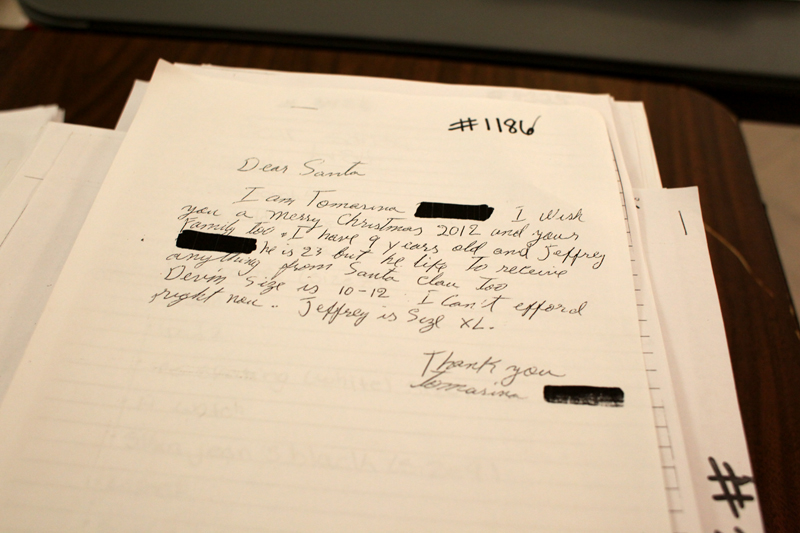 #1186
Dear Santa
I am Tomarina I wish
you a merry Christmas 2012 and your
Family too. I have 9 years old and Jeffrey
he is 23 but he like To receive
anything from Santa Clau Too
Devin Size is 10-12 I Can't efford
right now. Jeffrey is Size XL.
Thank you
Tomarina
#